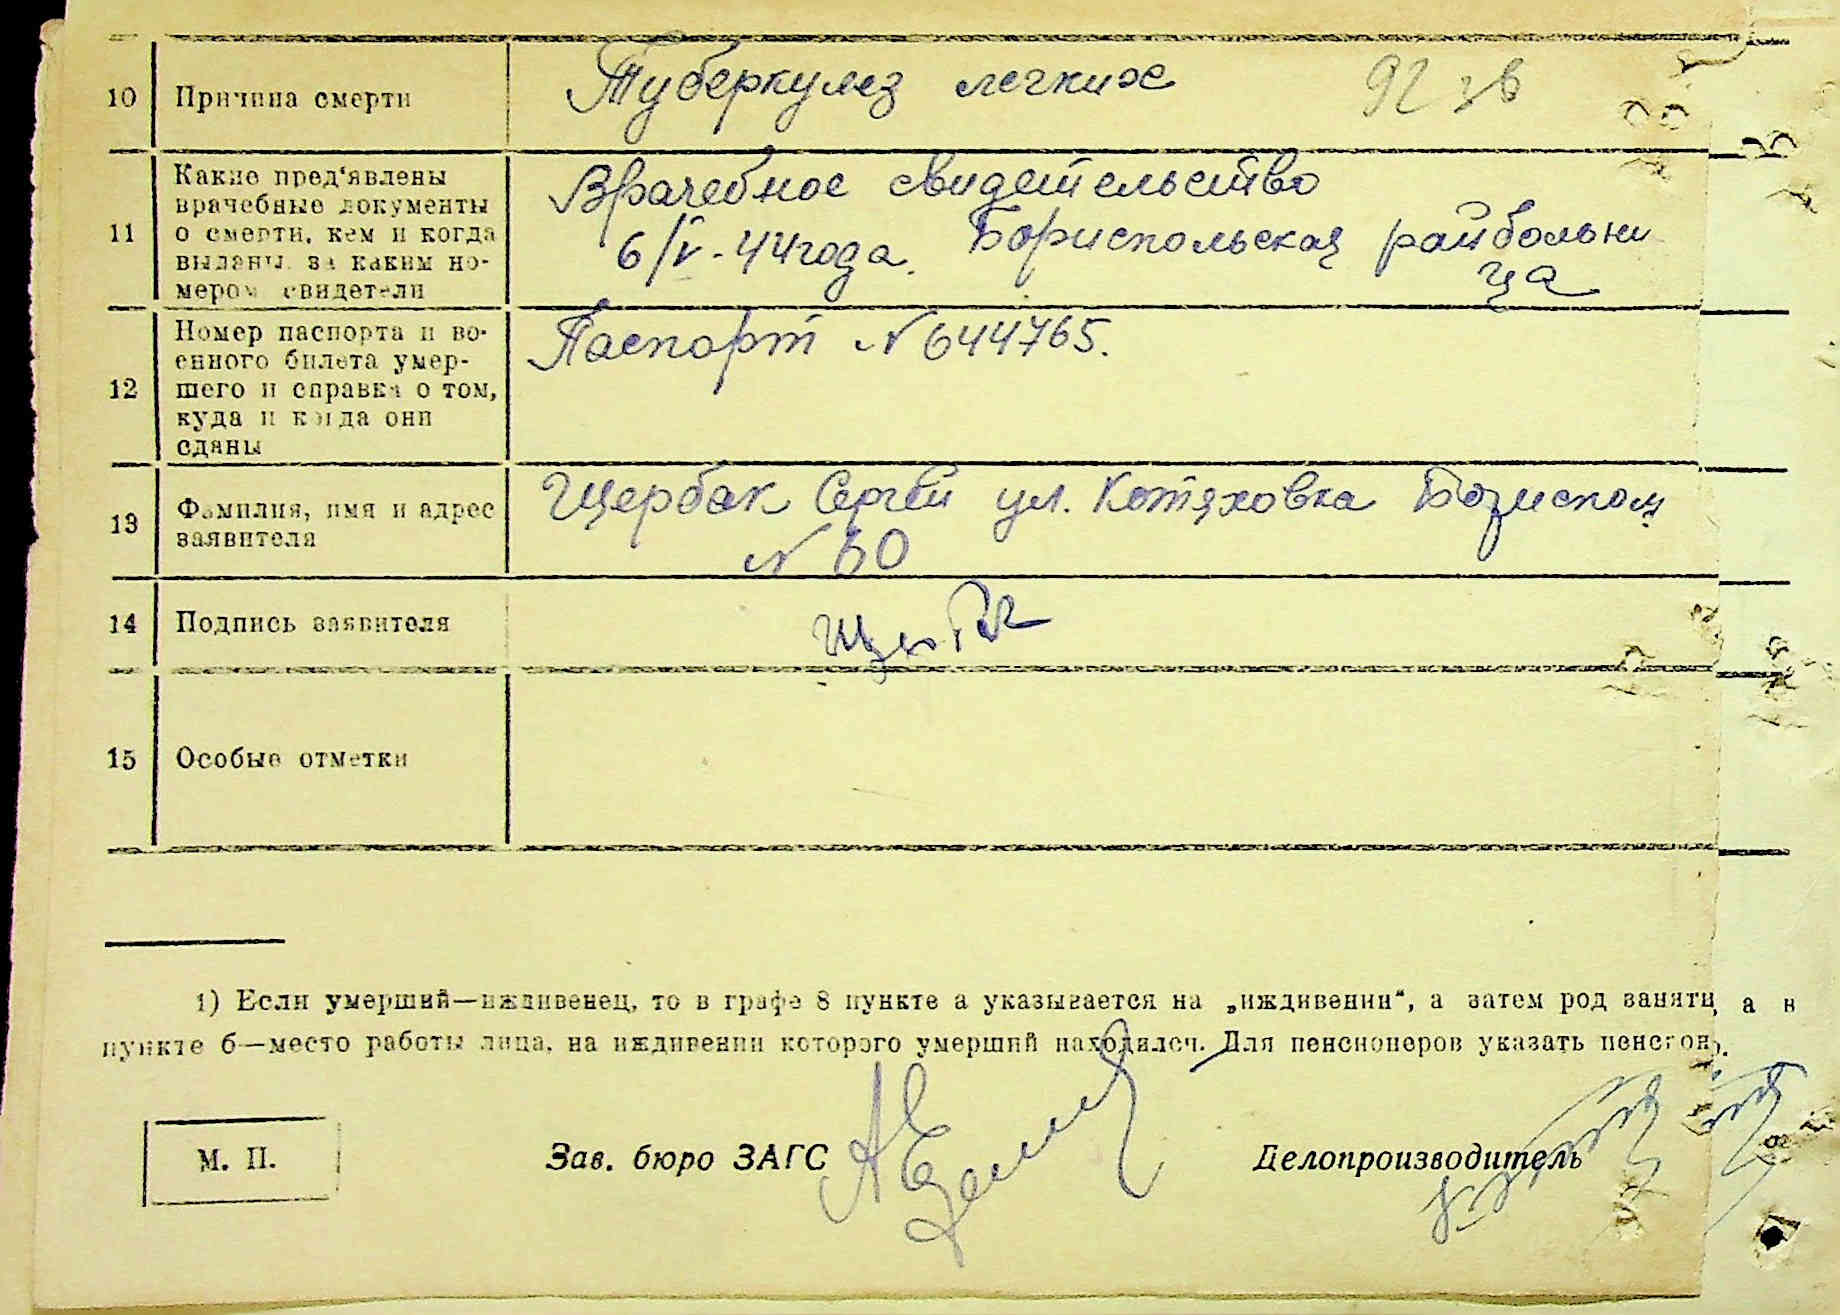 10 Причина смерти Туберкулез легких
11 Какие пред'явлены
врачебные документы
о смерти, кем и когда
выданы, за каким но-
мером свидетели
Врачебное свидетельство
6/V-44 года. Бориспольская райбольни
ца
12 Номер паспорта и во-
енного билета умер-
шего и справка о том,
куда и когда они
сданы
Паспорт N 644765.
13 Фамилия, имя и адрес
заявителя
Щербак Сергей ул. Котяховка
N 60
14 Подпись заявителя
15 Особые отметки
1) Если умерший—иждивенец, то в графе 8 пункте а указывается на „иждивении“, а затем род заняти а в
пункте б—место работы лица, на иждивении которого умерший находился. Для пенсионеров указать
М. П. Зав. бюро ЗАГС Делопроизводитель